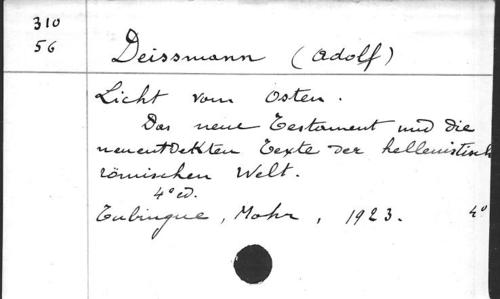 310
56
Deissmann (Adolf)
Licht vom Osten.
Das neue Testament und die
neuentdekten Texte der hellenistisch
römischen Welt.
4° éd.
Tubingue, Mohr, 1923. 4°